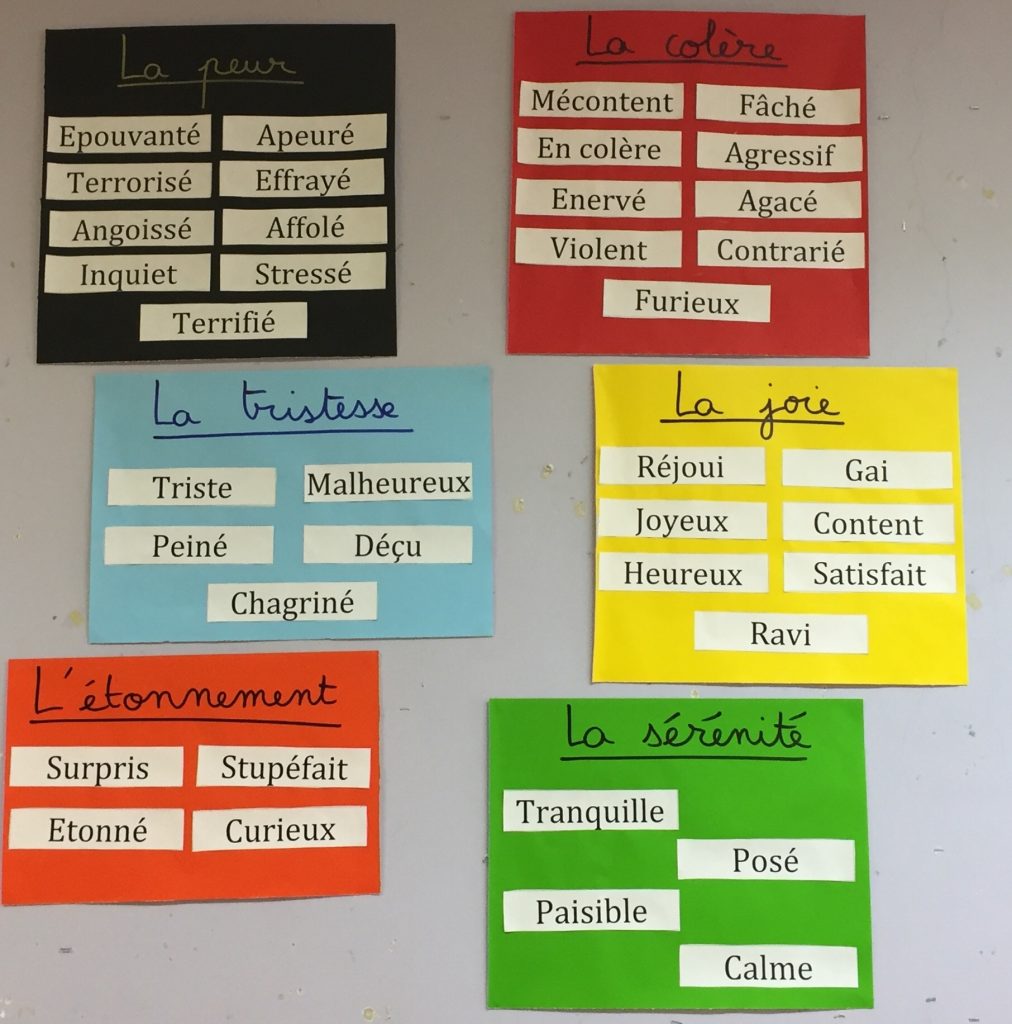 La peur
Epouvanté Apeuré
Terrorisé Effrayé
Angoissé Affolé
Inquiet Stressé
Terrifié
La colère
Mécontent Fâché
En colère Agressif
Enervé Agacé
Violent Contrarié
Furieux
La tristesse
Triste Malheureux
Peiné Déçu
Chagriné
La joie
Réjoui Gai
Joyeux Content
Heureux Satisfait
Ravi
L'étonnement
Surpris Stupéfait
Etonné Curieux
La sérénité
Tranquille
Posé
Paisible
Calme